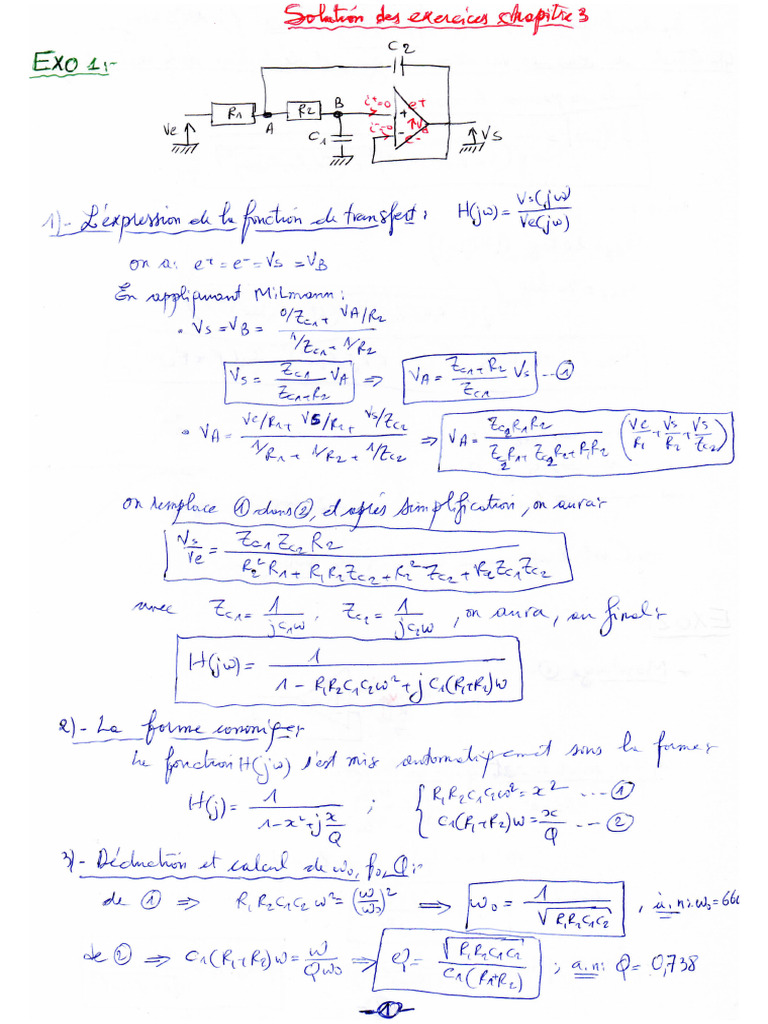 Solution des exercices chapitre 3
EXO 1:-
C2
R1 R2 B i+=0 e+
Ve A C1 i-=0 e- Vs
+
-
1)- L'expression de la fonction de transfert: H(jω) = Vs(jω)/Ve(jω)
on a: e+ = e- = Vs = VB
En appliquant Milmann:
• Vs = VB = (0/Zc1 + VA/R2)/(1/Zc1 + 1/R2)
Vs = Zc1/(Zc1+R2) VA ⇒ VA = (Zc1+R2)/Zc1 Vs ...①
• VA = (Ve/R1 + VS/R2 + Vs/Zc2)/(1/R1 + 1/R2 + 1/Zc2) ⇒ VA = Zc2R1R2/(Zc2R1 + Zc2R2 + R1R2) (Ve/R1 + Vs/R2 + Vs/Zc2)
on remplace ① dans ②, et après simplification, on aura:
Vs/Ve = Zc1Zc2R2/(R2²R1 + R1R2Zc2 + R2²Zc2 + R2Zc1Zc2)
avec Zc1 = 1/jc1ω, Zc2 = 1/jc2ω, on aura, au final:
H(jω) = 1/(1 - R1R2C1C2ω² + jC1(R1+R2)ω)
2)- La forme
La fonction H(jω) s'est mis automatiquement sous la forme:
H(j) = 1/(1-x²+j x/Q) ; { R1R2C1C2ω² = x² ...①
C1(R1+R2)ω = x/Q ...②
3)- Déduction et calcul de ω0, f0, Q:-
de ① ⇒ R1R2C1C2ω² = (ω/ω0)² ⇒ ω0 = 1/√R1R2C1C2 , a.n: ω0=666
de ② ⇒ C1(R1+R2)ω = ω/Qω0 ⇒ Q = √R1R2C1C2/C1(R1+R2) ; a.n: Q = 0,738
-1-